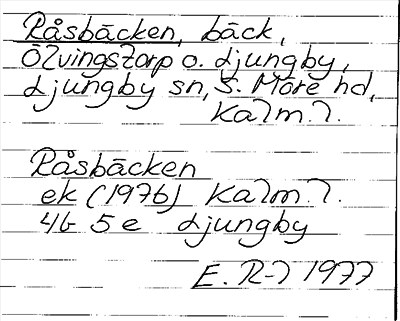 Råsbäcken, bäck,
Ölvingstorp o. Ljungby,
Ljungby sn, S. Möre hd,
Kalm. l.
Råsbäcken
ek (1976) Kalm. l.
4G 5e Ljungby
E. R-l 1977